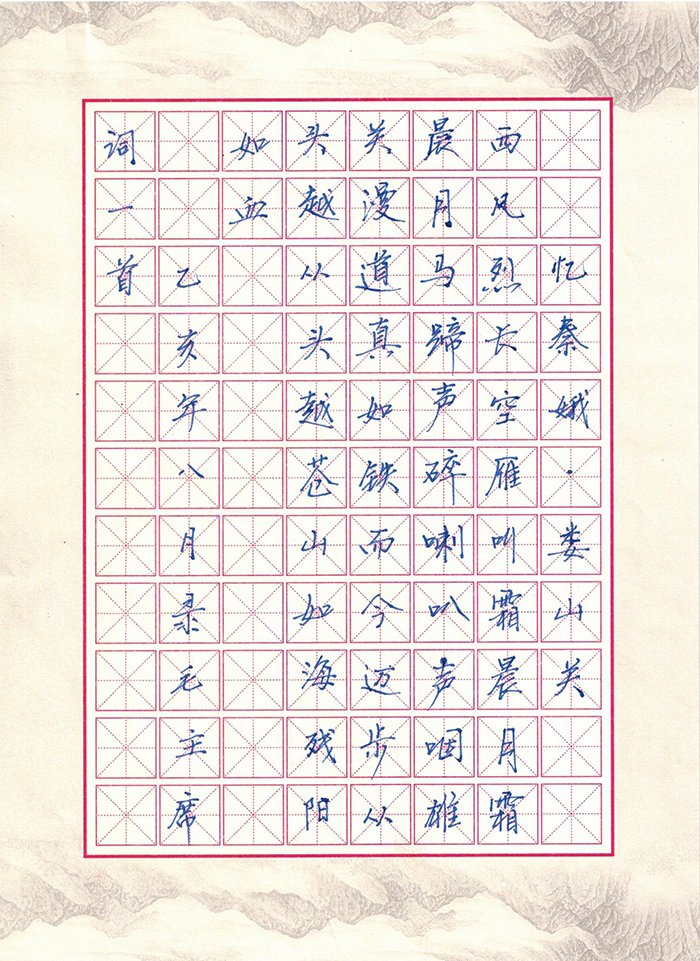 忆秦娥·娄山关
西风烈长空雁叫霜晨月霜
晨月马蹄声碎喇叭声咽雄
关漫道真如铁而今迈步从
头越从头越苍山如海残阳
如血
乙亥年八月录毛主席
词一首